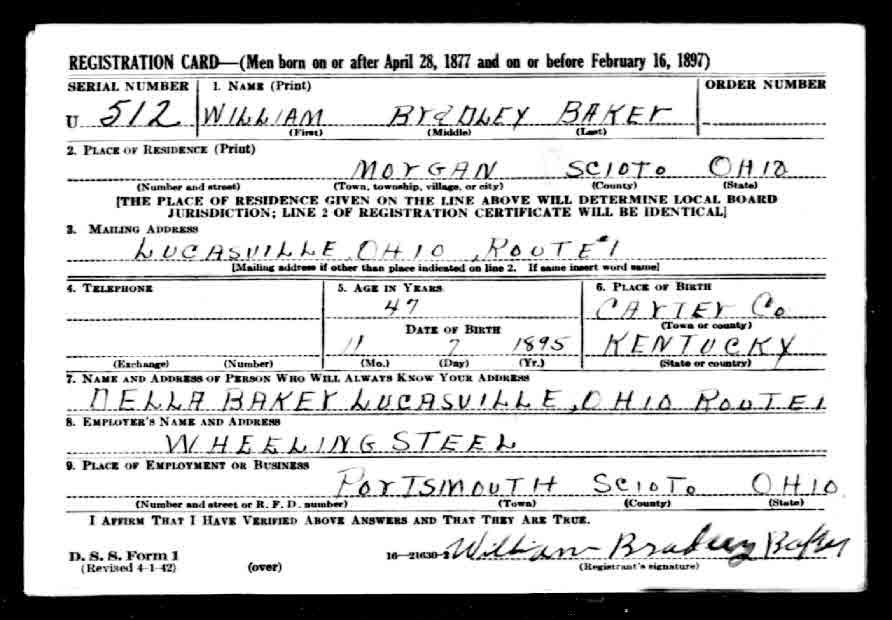 REGISTRATION CARD—(Men born on or after April 28, 1877 and on or before February 16, 1897)
SERIAL NUMBER 1. NAME (Print) ORDER NUMBER
U 512 WILLIAM BRADLEY BAKER
(First) (Middle) (Last)
2. PLACE OF RESIDENCE (Print)
MORGAN SCIOTO OHIO
(Number and street) (Town, township, village, or city) (County) (State)
[THE PLACE OF RESIDENCE GIVEN ON THE LINE ABOVE WILL DETERMINE LOCAL BOARD
JURISDICTION; LINE 2 OF REGISTRATION CERTIFICATE WILL BE IDENTICAL]
3. MAILING ADDRESS
LUCASVILLE, OHIO, ROUTE #1
[Mailing address if other than place indicated on line 2. If same insert word same]
4. TELEPHONE 5. AGE IN YEARS 6. PLACE OF BIRTH
47 CARTER Co
(Town or county)
DATE OF BIRTH
11 7 1895 KENTUCKY
(Exchange) (Number) (Mo.) (Day) (Yr.) (State or country)
7. NAME AND ADDRESS OF PERSON WHO WILL ALWAYS KNOW YOUR ADDRESS
DELLA BAKER LUCASVILLE, OHIO ROUTE 1
8. EMPLOYER'S NAME AND ADDRESS
WHEELING STEEL
9. PLACE OF EMPLOYMENT OR BUSINESS
PORTSMOUTH SCIOTO OHIO
(Number and street or R. F. D. number) (Town) (County) (State)
I AFFIRM THAT I HAVE VERIFIED ABOVE ANSWERS AND THAT THEY ARE TRUE.
D. S. S. Form 1
(Revised 4-1-42) (over) 16—21630-2 William Bradley Baker
(Registrant's signature)